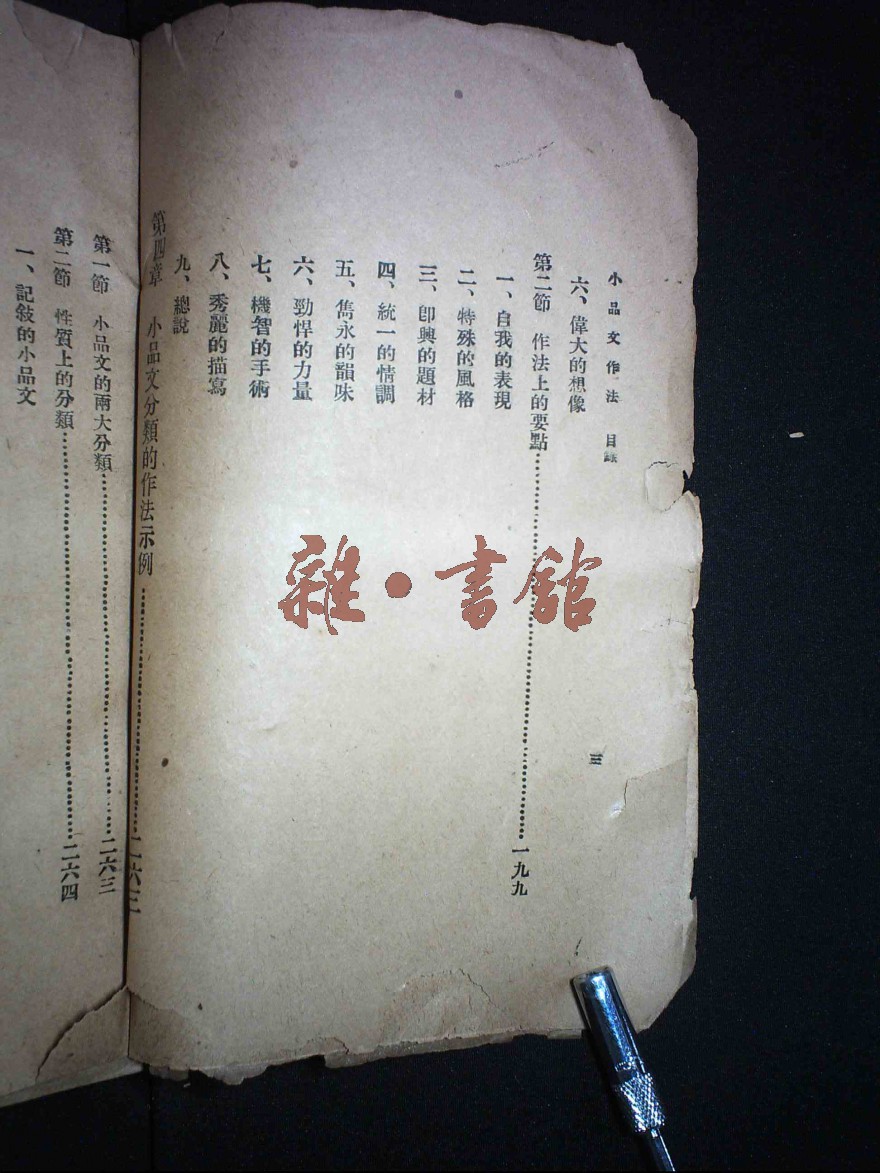 小品文作法 目錄
六、偉大的想像
第二節 作法上的要點……一九九
一、自我的表現
二、特殊的風格
三、卽興的題材
四、統一的情調
五、雋永的韻味
六、勁悍的力量
七、機智的手術
八、秀麗的描寫
九、總說
第四章 小品文分類的作法示例……二六三
第一節 小品文的兩大分類……二六三
第二節 性質上的分類……二六四
一、記敍的小品文
三
雜·書館